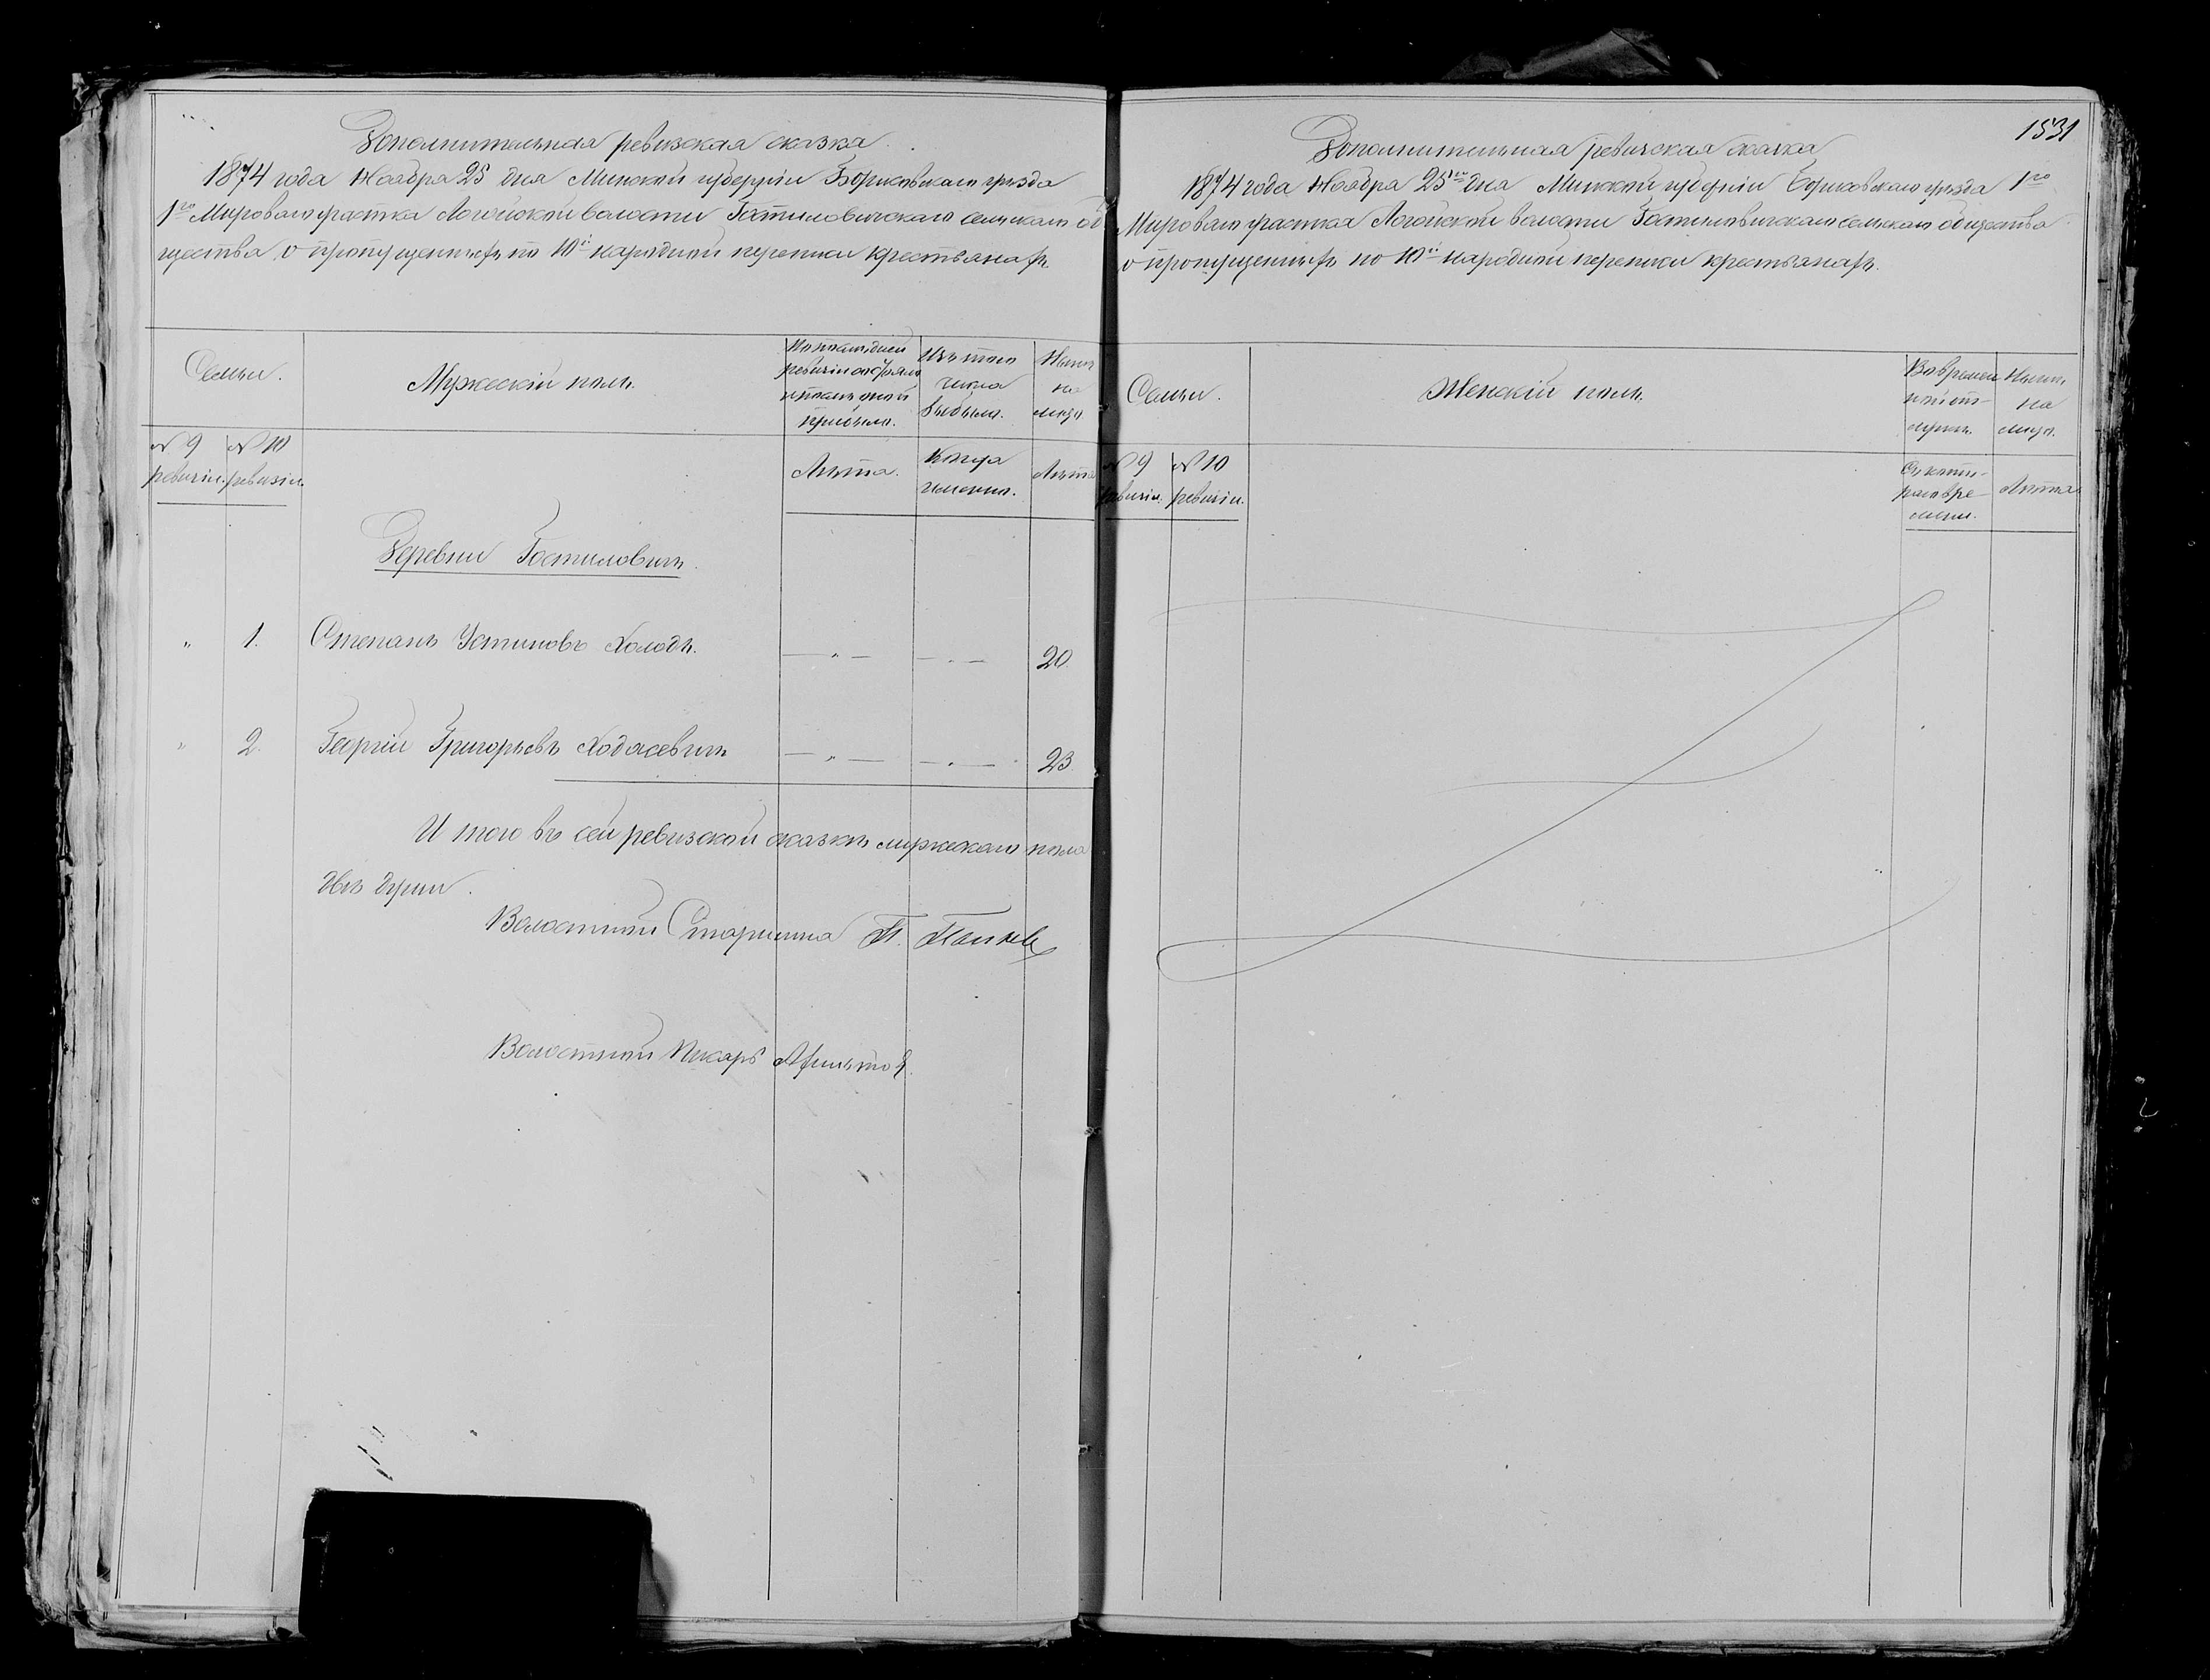 Дополнительная ревизская сказка
1874 года Ноября 25 дня Минской губерніи Борисовскаго уѣзда
1го Мироваго участка Логойской волости Гостиловичскаго сельскаго об
щества о пропущенныхъ по 10й народной переписи крестьянахъ
Семьи.
Мужескій полъ.
По последней
ревизіи состояло
и послѣ оной
прибыло.
Изъ того
числа
выбыло.
Нынѣ
на
лицо
№ 9
ревизіи.
№ 10
ревизіи.
Лѣта.
Когда
именно.
Лѣта
Деревни Гостиловичъ.
" 1. Степанъ Устиновъ Холодъ. — " — — " — 20
" 2. Георгій Григорьевъ Ходасевичъ — " — — " — 23
И того въ сей ревизской сказкѣ мужескаго пола
двѣ души.
Волостной Старшина П.
Волостной Писарь
1531
Дополнительная ревизская сказка
1874 года Ноября 25го дня Минской губерніи Борисовскаго уѣзда 1го
Мироваго участка Логойской волости Гостиловичскаго сельскаго общества
о пропущенныхъ по 10й народной переписи крестьянахъ.
Семьи.
Женскій полъ.
Во времен
ной от-
лучкѣ.
Нынѣ
на
лицо.
№ 9
ревизіи.
№ 10
ревизіи.
Съ кото-
раго вре-
мени.
Лѣта